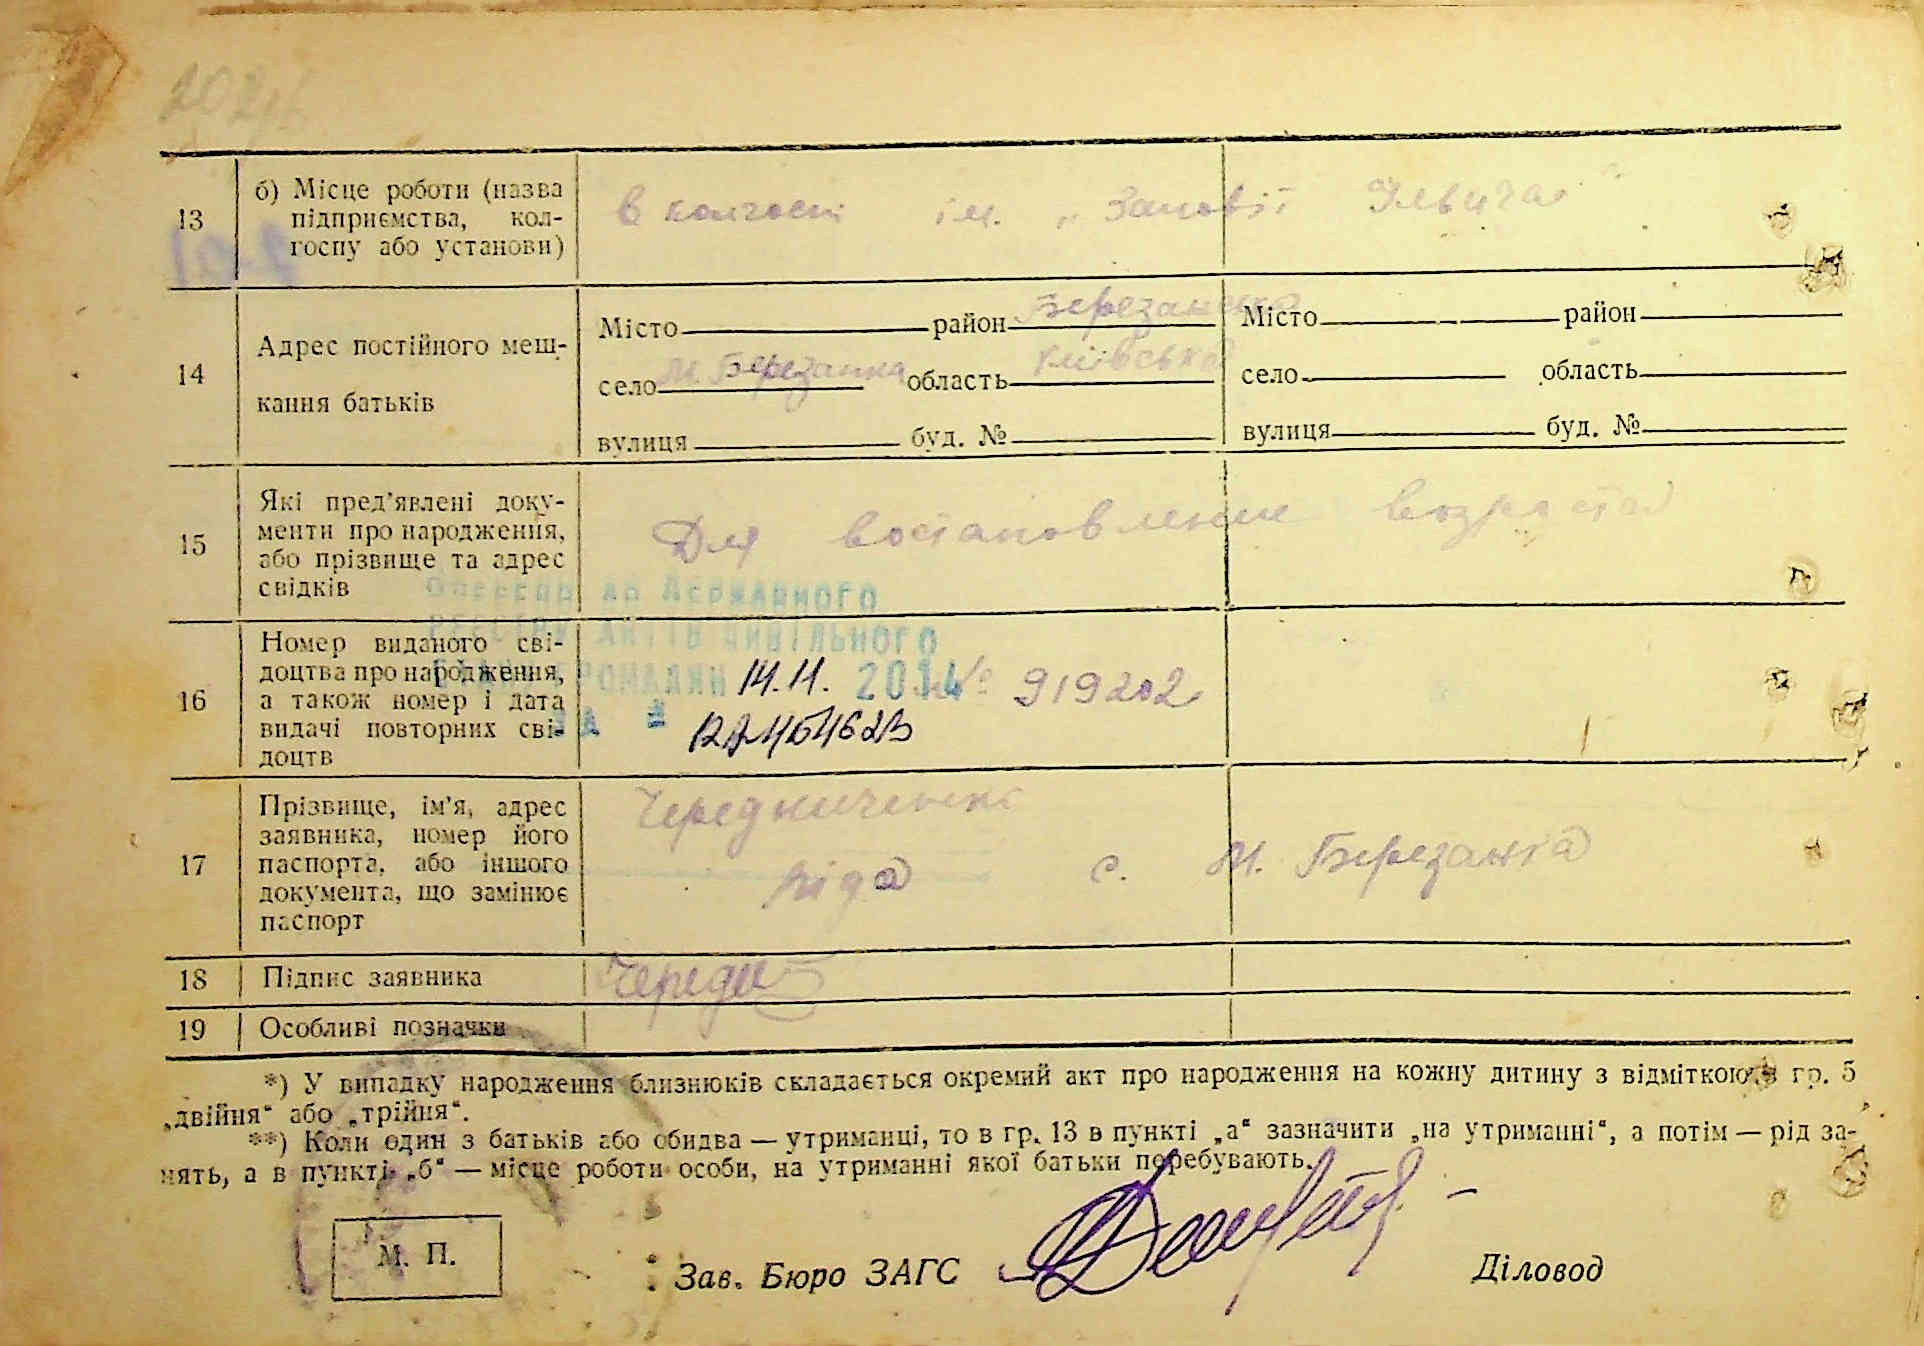 13
б) Місце роботи (назва
підприємства, кол-
госпу або установи)
в колгоспі ім. „Заповіт Ілвича"
14
Адрес постійного меш-
кання батьків
Місто район Березанська
село М. Березанка область Київська
вулиця буд. №
Місто район
село область
вулиця буд. №
15
Які пред’явлені доку-
менти про народження,
або прізвище та адрес
свідків
Для востановление возроста
16
Номер виданого сві-
доцтва про народження,
а також номер і дата
видачі повторних сві-
доцтв
до Державного
реєстру актів цивільного
громадян 14.11. 2014
№ 919202
17
Прізвище, ім’я, адрес
заявника, номер його
паспорта, або іншого
документа, що замінює
паспорт
Чередниченко
с. М. Березанка
18
Підпис заявника
19
Особливі позначки
*) У випадку народження близнюків складається окремий акт про народження на кожну дитину з відміткою в гр. 5
„двійня“ або „трійня“.
**) Коли один з батьків або обидва — утриманці, то в гр. 13 в пункті „а“ зазначити „на утриманні“, а потім — рід за-
нять, а в пункті „б“ — місце роботи особи, на утриманні якої батьки перебувають.
М. П.
Зав. Бюро ЗАГС
Діловод